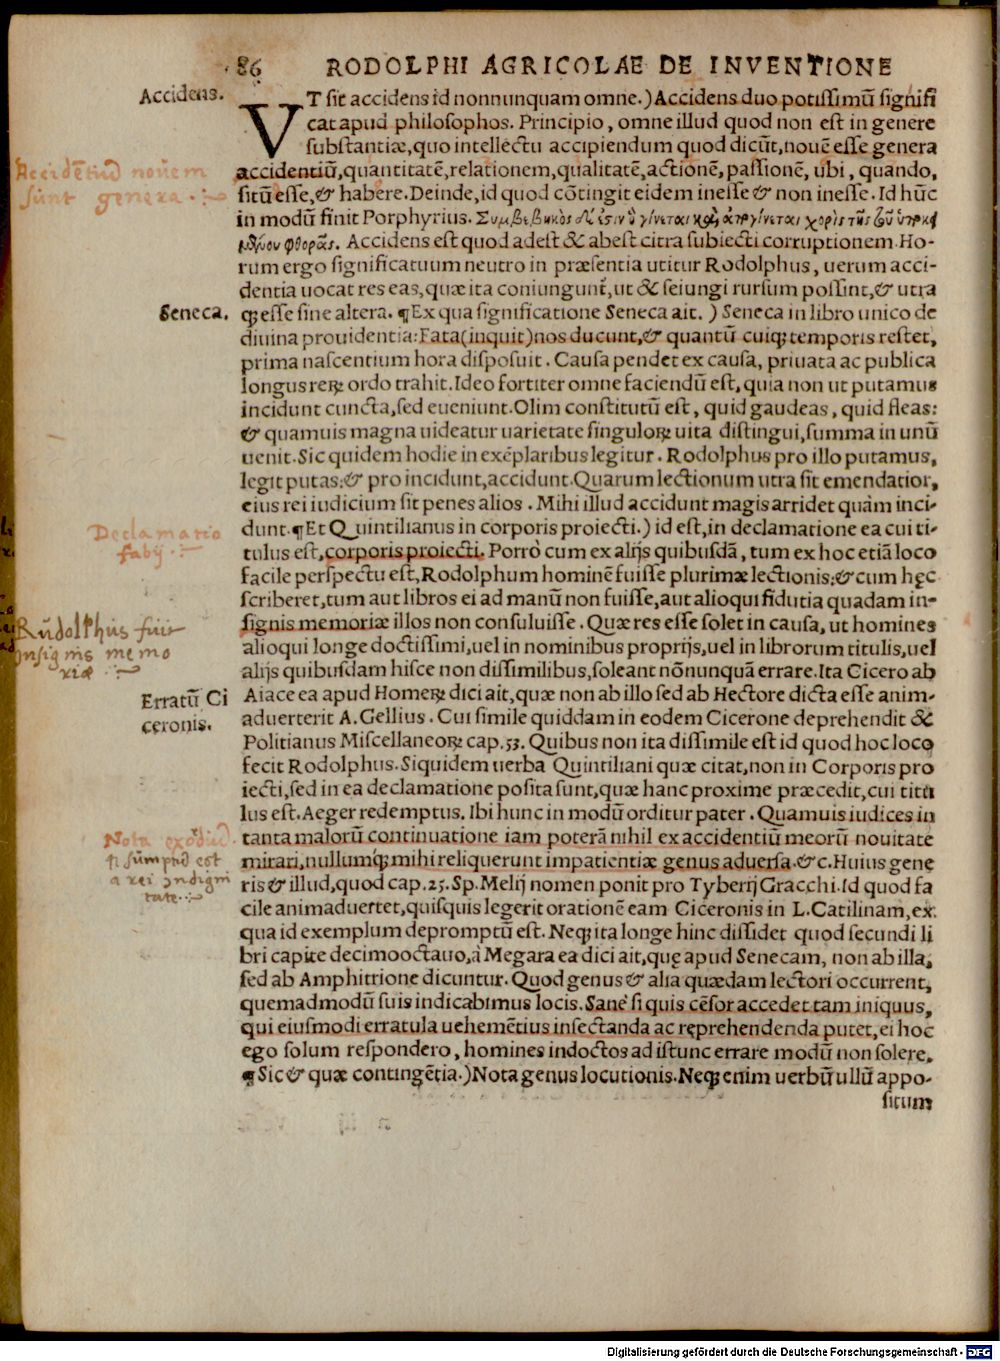 86 RODOLPHI AGRICOLAE DE INVENTIONE
Accidens.
VT sit accidens id nonnunquam omne.) Accidens duo potissimũ signifi
cat apud philosophos. Principio, omne illud quod non est in genere
substantiæ, quo intellectu accipiendum quod dicũt, nouẽ esse genera
accidentiũ, quantitatẽ, relationem, qualitatẽ, actionẽ, passionẽ, ubi, quando,
sitũ esse, & habere. Deinde, id quod cõtingit eidem inesse & non inesse. Id hũc
in modũ finit Porphyrius. Συμβεβηκὸς δέ ἐστιν ὃ γίνεται καὶ ἀπογίνεται χορὶς τῆς τοῦ ὑποκει
μένου φθορᾶς. Accidens est quod adest & abest citra subiecti corruptionem. Ho-
rum ergo significatuum neutro in præsentia utitur Rodolphus, uerum acci-
dentia uocat res eas, quæ ita coniungunt, ut & seiungi rursum possint, & utra
q; esse sine altera. ¶ Ex qua significatione Seneca ait. ) Seneca in libro unico de
diuina prouidentia: Fata (inquit) nos ducunt, & quantũ cuiq; temporis restet,
prima nascentium hora disposuit. Causa pendet ex causa, priuata ac publica
longus rerꝝ ordo trahit. Ideo fortiter omne faciendũ est, quia non ut putamus
incidunt cuncta, sed eueniunt. Olim constitutũ est, quid gaudeas, quid fleas:
& quamuis magna uideatur uarietate singuloꝝ uita distingui, summa in unũ
uenit. Sic quidem hodie in exẽplaribus legitur. Rodolphus pro illo putamus,
legit putas: & pro incidunt, accidunt. Quarum lectionum utra sit emendatior,
eius rei iudicium sit penes alios. Mihi illud accidunt magis arridet quàm inci-
dunt. ¶ Et Quintilianus in corporis proiecti.) id est, in declamatione ea cui ti-
tulus est, corporis proiecti. Porrò cum ex alijs quibusdã, tum ex hoc etiã loco
facile perspectu est, Rodolphum hominẽ fuisse plurimæ lectionis: & cum hęc
scriberet, tum aut libros ei ad manũ non fuisse, aut alioqui fidutia quadam in-
signis memoriæ illos non consuluisse. Quæ res esse solet in causa, ut homines
alioqui longe doctissimi, uel in nominibus proprijs, uel in librorum titulis, uel
alijs quibusdam hisce non dissimilibus, soleant nõnunquã errare. Ita Cicero ab
Aiace ea apud Homerꝝ dici ait, quæ non ab illo sed ab Hectore dicta esse anim-
aduerterit A. Gellius. Cui simile quiddam in eodem Cicerone deprehendit &
Politianus Miscellaneoꝝ cap. 53. Quibus non ita dissimile est id quod hoc loco
fecit Rodolphus. Siquidem uerba Quintiliani quæ citat, non in Corporis pro
iecti, sed in ea declamatione posita sunt, quæ hanc proxime præcedit, cui titu
lus est. Aeger redemptus. Ibi hunc in modũ orditur pater. Quamuis iudices in
tanta malorũ continuatione iam poterã nihil ex accidentiũ meorũ nouitate
mirari, nullumq; mihi reliquerunt impatientiæ genus aduersa. & c. Huius gene
ris & illud, quod cap. 25. Sp. Melij nomen ponit pro Tyberij Gracchi. Id quod fa
cile animaduertet, quisquis legerit orationẽ eam Ciceronis in L. Catilinam, ex
qua id exemplum depromptũ est. Neq; ita longe hinc dissidet quod secundi li
bri capite decimooctauo, à Megara ea dici ait, quę apud Senecam, non ab illa,
sed ab Amphitrione dicuntur. Quod genus & alia quædam lectori occurrent,
quemadmodũ suis indicabimus locis. Sanè si quis cẽsor accedet tam iniquus,
qui eiusmodi erratula uehemẽtius insectanda ac reprehendenda putet, ei hoc
ego solum respondero, homines indoctos ad istunc errare modũ non solere.
¶ Sic & quæ contingẽtia.) Nota genus locutionis. Neq; enim uerbũ ullũ appo-
situm
Accidẽtiũ nouem
sunt genera
Seneca.
Declamatio
fabij
Rudolphus fuit
insignis memo
riæ
Erratũ Ci
ceronis.
Nota exordiũ
sumptũ est
a rei indigni
tate
Digitalisierung gefördert durch die Deutsche Forschungsgemeinschaft - DFG